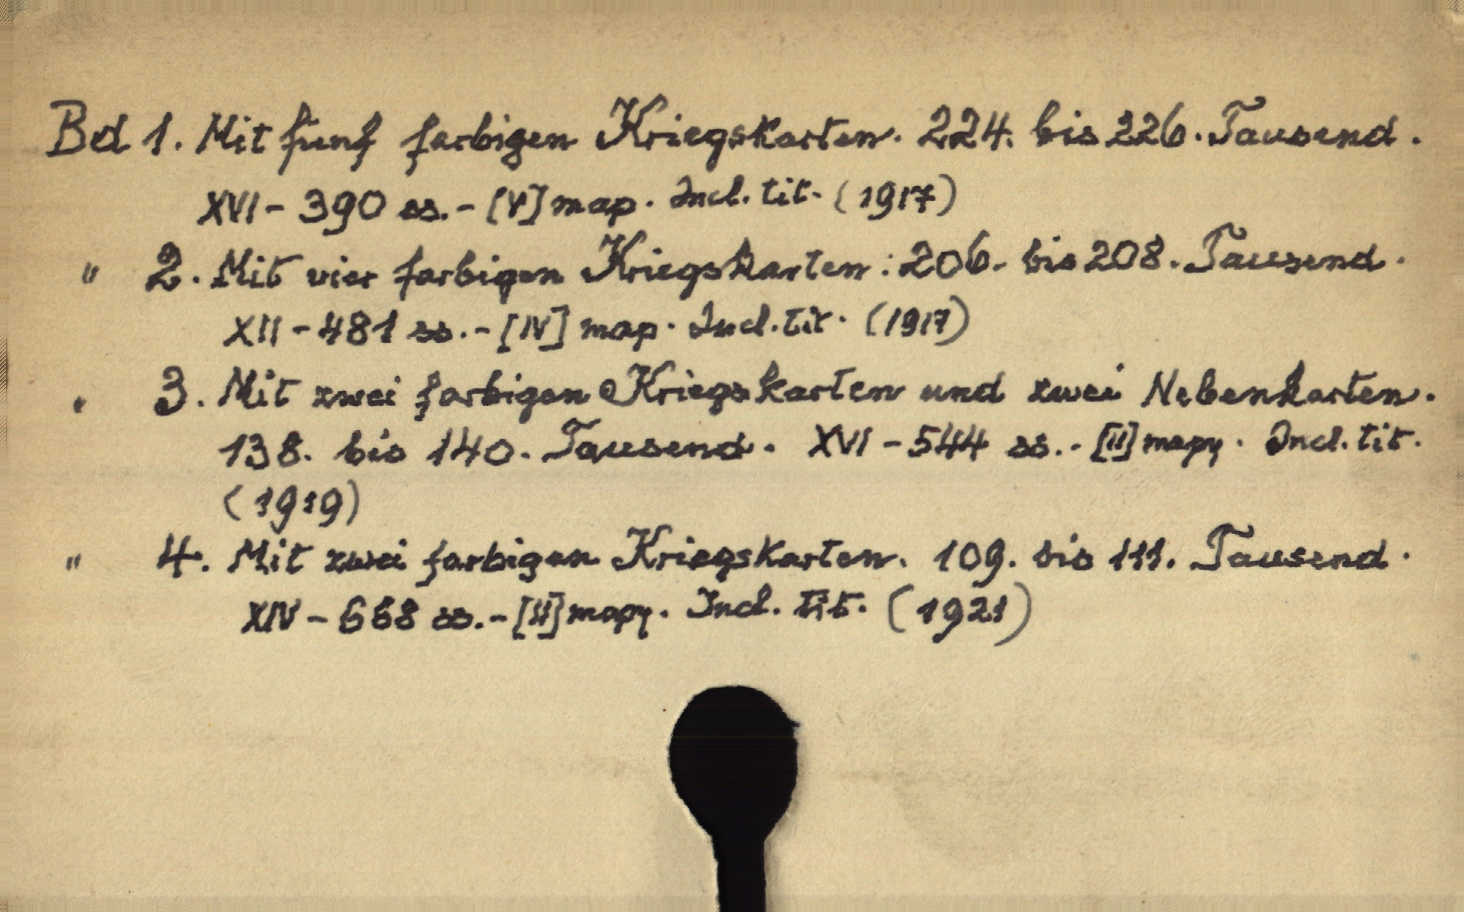 Bd 1. Mit fünf farbigen Kriegskarten. 224. bis 226. Tausend.
XVI - 390 ss. - [V] map. Incl. tit. (1917)
" 2. Mit vier farbigen Kriegskarten. 206. bis 208. Tausend.
XII - 481 ss. - [IV] map. Incl. tit. (1917)
" 3. Mit zwei farbigen Kriegskarten und zwei Nebenkarten.
138. bis 140. Tausend. XVI - 544 ss. - [II] mapy. Incl. tit.
(1919)
" 4. Mit zwei farbigen Kriegskarten. 109. bis 111. Tausend.
XIV - 668 ss. - [II] mapy. Incl. tit. (1921)